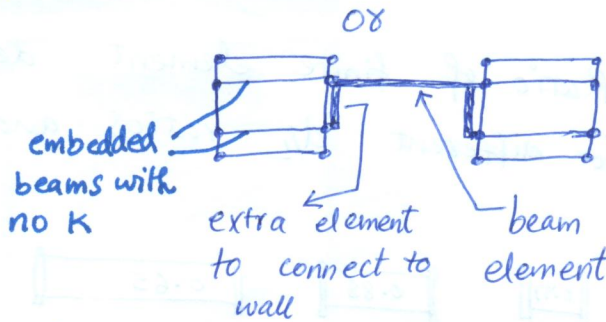 or
embedded
beams with
no K
extra element
to connect to
wall
beam
element